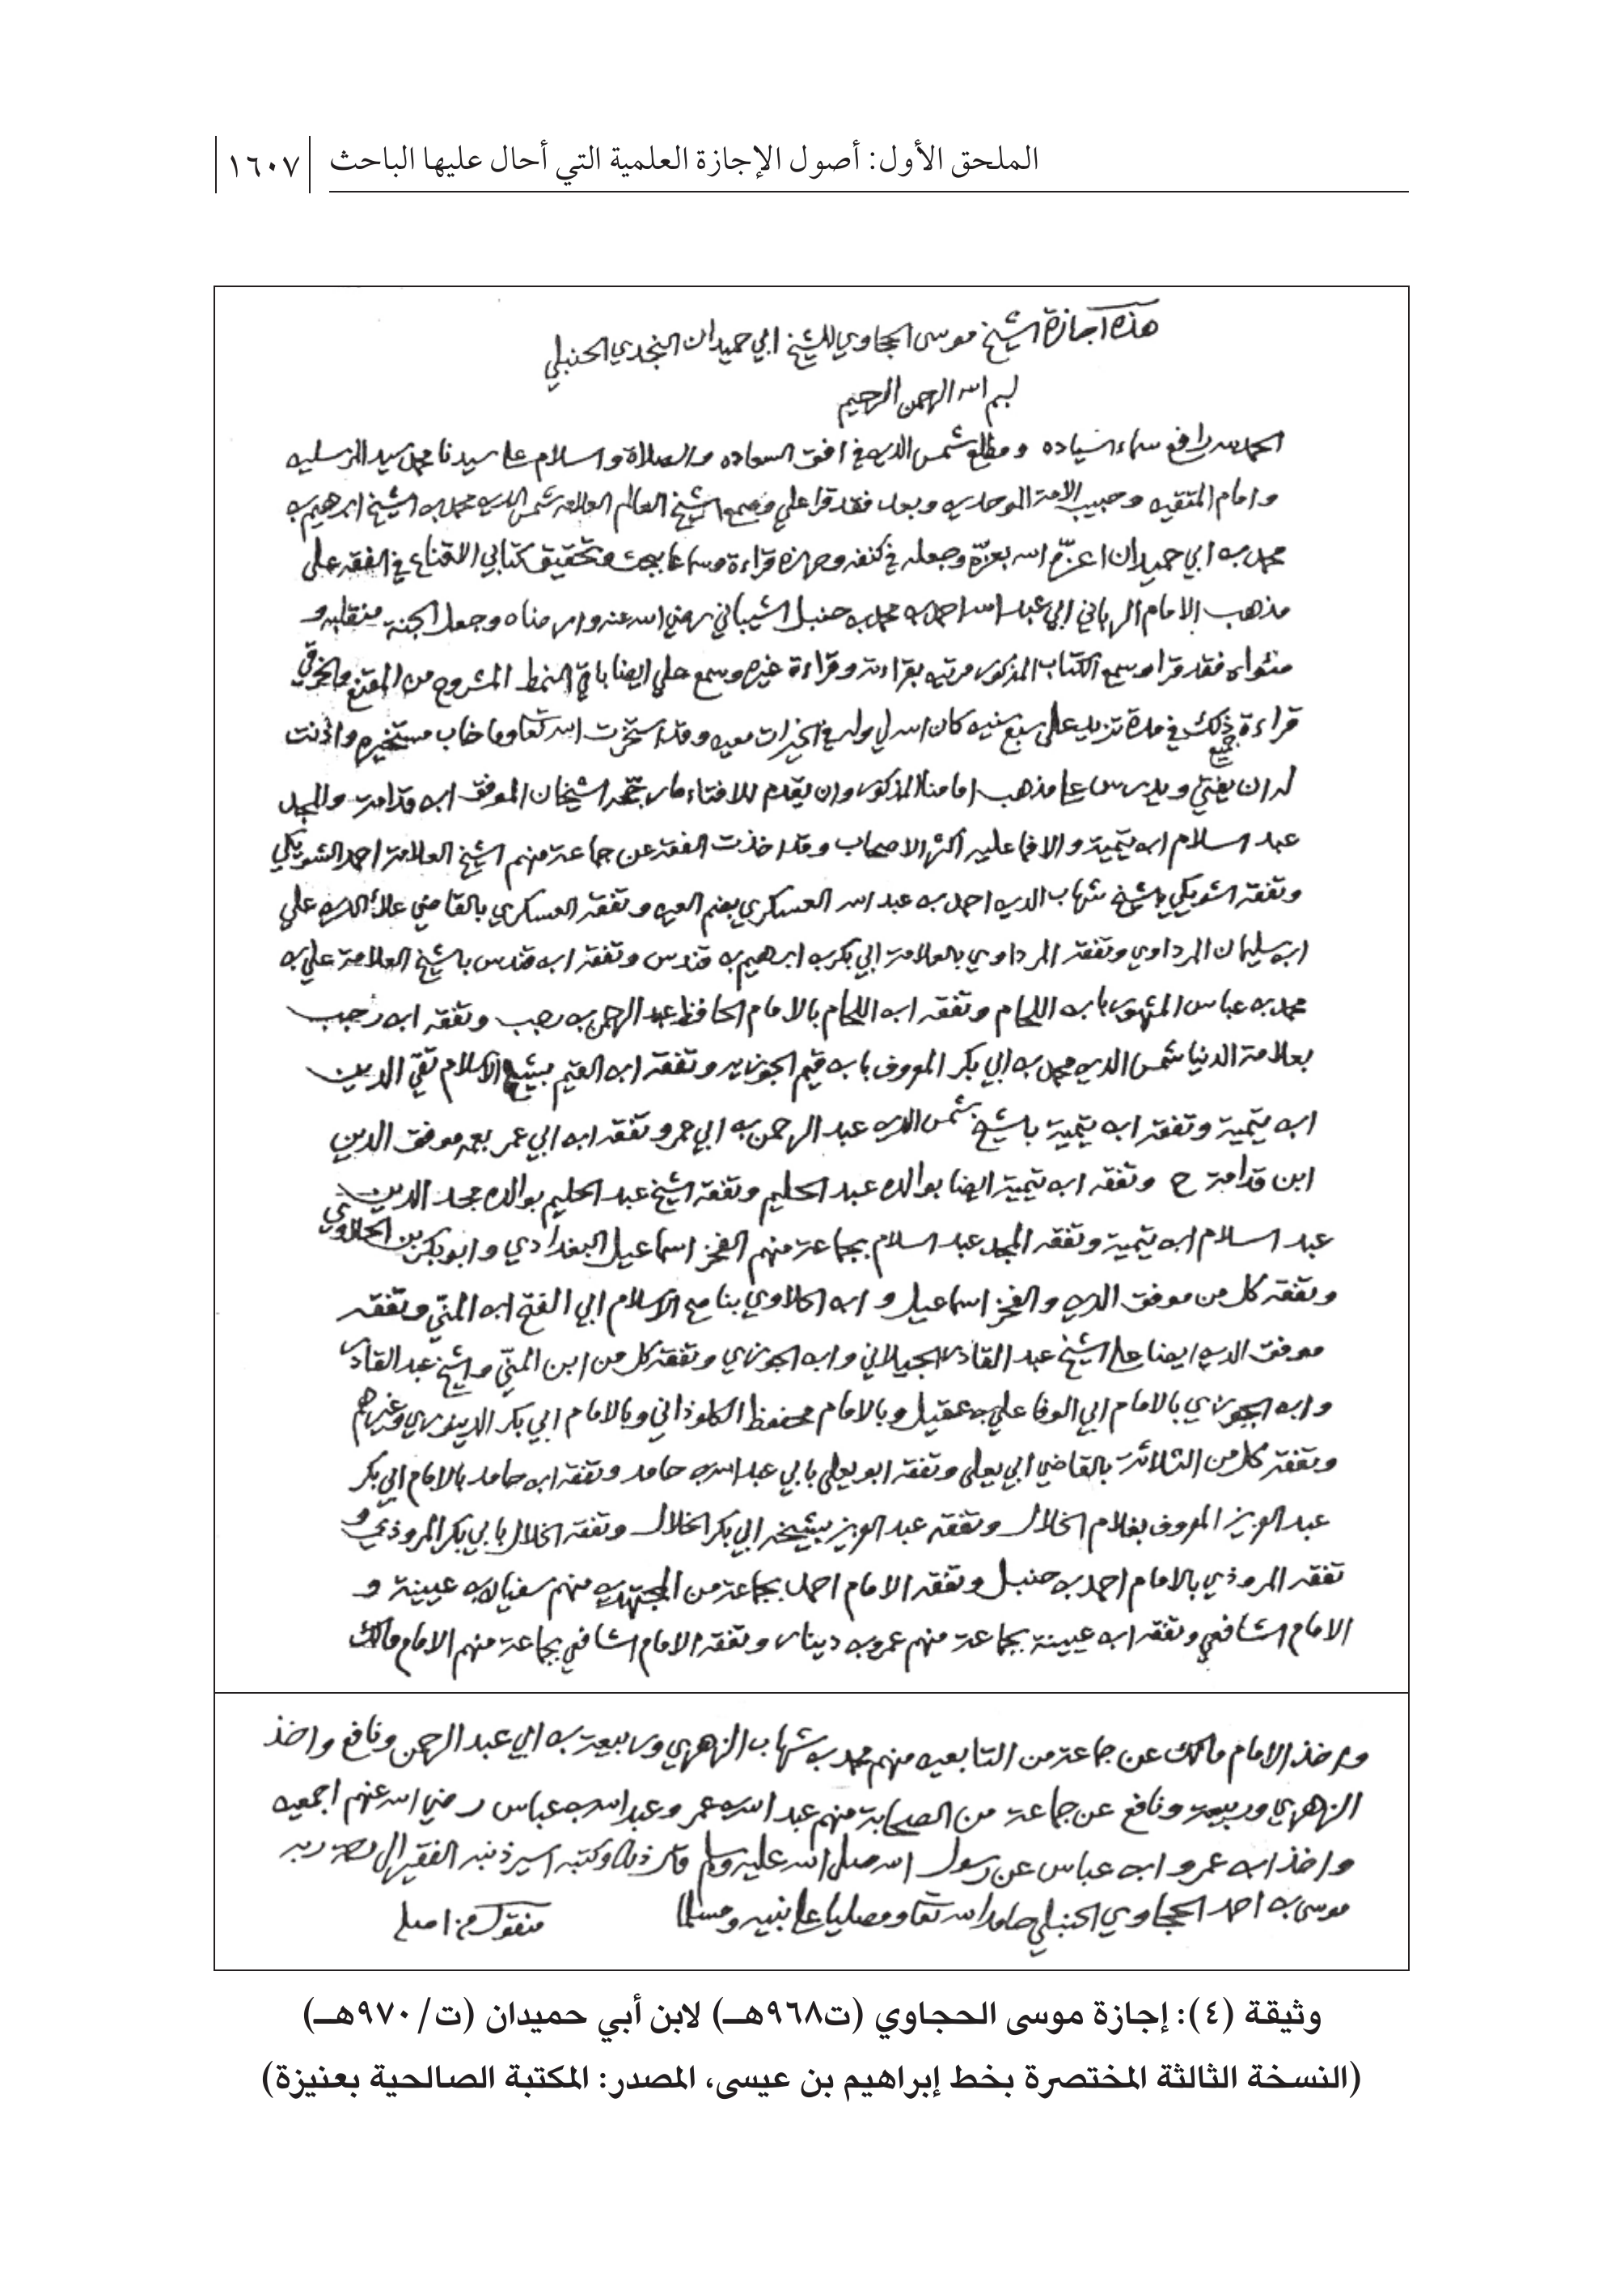 الملحق الأول: أصول الإجازة العلمية التي أحال عليها الباحث
١٦٠٧
هذه اجازة الشيخ موسى الحجاوي للشيخ ابي حميدان النجدي الحنبلي
بسم الله الرحمن الرحيم
الحمد لله رافع سماء السياده ومطلع شمس الدين في افق السعاده والصلاة والسلام على سيدنا محمد سيد المرسلين
وامام المتقين وحبيب الامة الموحدين وبعد فقد قرا علي وسمع الشيخ العالم العلامه شمس الدين محمد بن الشيخ ابرهيم بن
محمد بن ابي حميدان اعزه الله بعزه وجعله في كنفه وحرزه قراءة وسماعا ببحث وتحقيق كتابي الاقناع في الفقه على
مذهب الامام الرباني ابي عبد الله احمد بن محمد بن حنبل الشيباني رضي الله عنه وارضاه وجعل الجنة منقلبه و
مثواه فقد قرا وسمع الكتاب المذكور مرتين بقراءته وقراءة غيره وسمع علي ايضا باقي النمط المشروح من المقنع والخرقي
قراءة جميع ذلك في مدة تزيد على سبع سنين كان الله لي وله في الخيرات معين وقد استخرت الله تعا وما خاب مستخيره واذنت
له ان يفتي ويدرس على مذهب امامنا المذكور وان يقدم للافتاء ما رجحه الشيخان الموفق ابن قدامة والمجد
عبد السلام ابن تيمية والا فما عليه اكثر الاصحاب وقد اخذت الفقه عن جماعة منهم الشيخ العلامة احمد الشويكي
وتفقه الشويكي بالشيخ شهاب الدين احمد بن عبد الله العسكري بضم العين وتفقه العسكري بالقاضي علاء الدين علي
ابن سليمان المرداوي وتفقه المرداوي بالعلامة ابي بكر بن ابرهيم بن قندس وتفقه ابن قندس بالشيخ العلامة علي بن
محمد بن عباس المشهور بابن اللحام وتفقه ابن اللحام بالامام الحافظ عبد الرحمن بن رجب وتفقه ابن رجب
بعلامة الدنيا شمس الدين محمد بن ابي بكر المعروف بابن قيم الجوزيه وتفقه ابن القيم بشيخ الاسلام تقي الدين
ابن تيمية وتفقه ابن تيمية بالشيخ شمس الدين عبد الرحمن بن ابي عمر وتفقه ابن ابي عمر بعمه موفق الدين
ابن قدامة ح وتفقه ابن تيمية ايضا بوالده عبد الحليم وتفقه الشيخ عبد الحليم بوالده مجد الدين
عبد السلام ابن تيمية وتفقه المجد عبد السلام بجماعة منهم الفخر اسماعيل البغدادي وابو بكر بن الحلاوي
وتفقه كل من موفق الدين والفخر اسماعيل وابن الحلاوي بناصح الاسلام ابي الفتح ابن المني وتفقه
موفق الدين ايضا على الشيخ عبد القادر الجيلاني وابن الجوزي وتفقه كل من ابن المني والشيخ عبد القادر
وابن الجوزي بالامام ابي الوفا علي بن عقيل وبالامام محفوظ الكلوذاني وبالامام ابي بكر الدينوري وغيرهم
وتفقه كل من الثلاثة بالقاضي ابي يعلى وتفقه ابو يعلى بابي عبد الله بن حامد وتفقه ابن حامد بالامام ابي بكر
عبد العزيز المعروف بغلام الخلال وتفقه عبد العزيز بشيخه ابي بكر الخلال وتفقه الخلال بابي بكر المروذي و
تفقه المروذي بالامام احمد بن حنبل وتفقه الامام احمد بجماعة من المجتهدين منهم سفيان بن عيينة و
الامام الشافعي وتفقه ابن عيينة بجماعة منهم عمرو بن دينار وتفقه الامام الشافعي بجماعة منهم الامام مالك
واخذ الامام مالك عن جماعة من التابعين منهم محمد بن شهاب الزهري وربيعة بن ابي عبد الرحمن ونافع واخذ
الزهري وربيعة ونافع عن جماعة من الصحابة منهم عبد الله بن عمر وعبد الله بن عباس رضي الله عنهم اجمعين
واخذ ابن عمر وابن عباس عن رسول الله صلى الله عليه وسلم قال ذلك وكتبه اسير ذنبه الفقير الى رحمة ربه
موسى بن احمد الحجاوي الحنبلي حامدا لله تعا ومصليا على نبيه ومسلما منقول من اصله
وثيقة (٤): إجازة موسى الحجاوي (ت٩٦٨هـ) لابن أبي حميدان (ت/٩٧٠هـ)
(النسخة الثالثة المختصرة بخط إبراهيم بن عيسى، المصدر: المكتبة الصالحية بعنيزة)